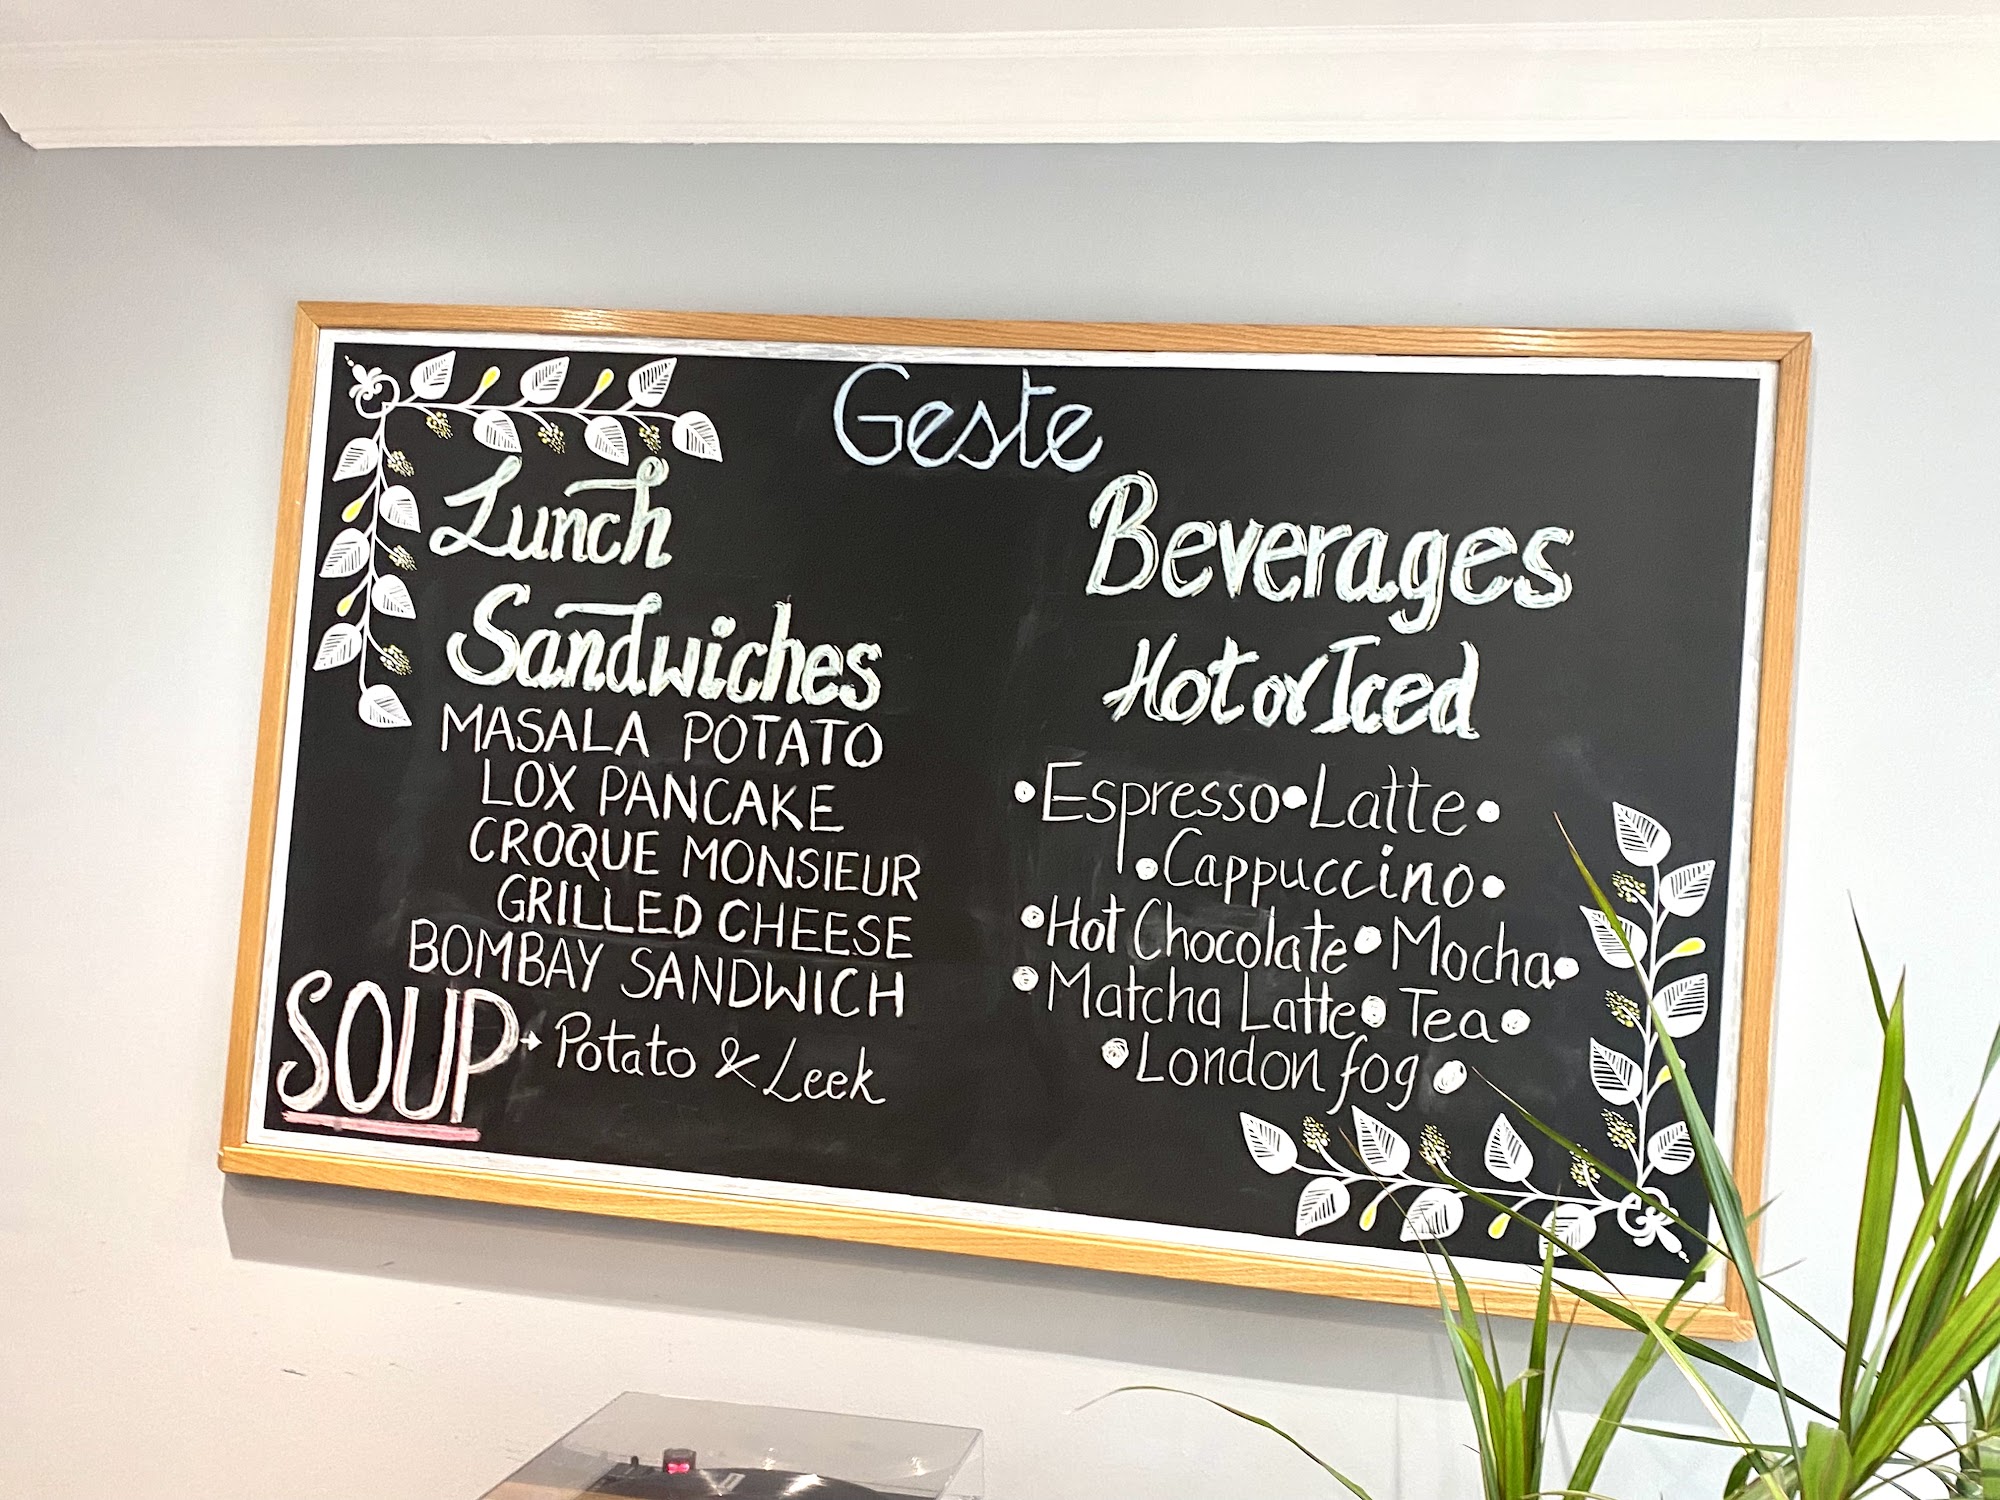 Geste
Lunch
Sandwiches
MASALA POTATO
LOX PANCAKE
CROQUE MONSIEUR
GRILLED CHEESE
BOMBAY SANDWICH
SOUP → Potato & Leek
Beverages
Hot or Iced
• Espresso • Latte •
• Cappuccino •
• Hot Chocolate • Mocha •
• Matcha Latte • Tea •
• London fog •